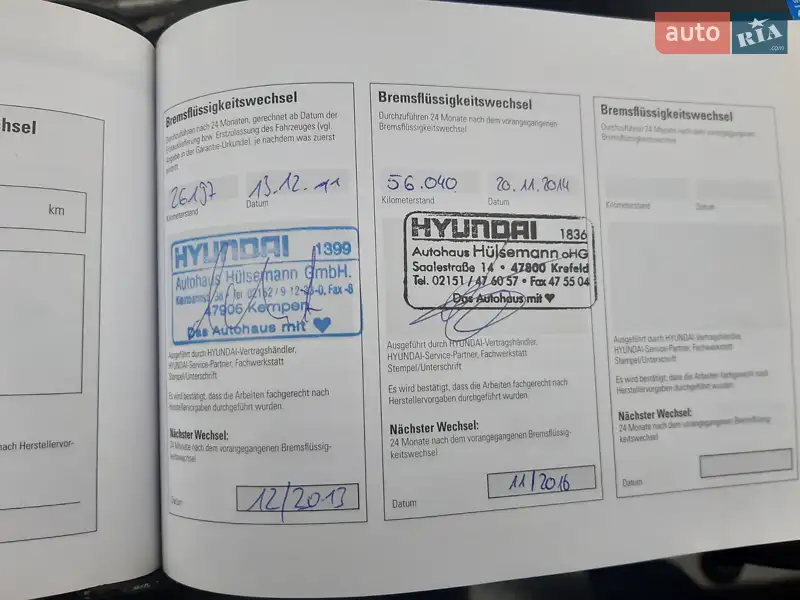 auto RIA .com
hsel
km
nach Herstellervor-
Bremsflüssigkeitswechsel
Durchzuführen nach 24 Monaten, gerechnet ab Datum der
Erstauslieferung bzw. Erstzulassung des Fahrzeuges (vgl.
Angabe in der Garantie-Urkunde), je nachdem was zuerst
eintritt
26197
13.12.11
Kilometerstand
Datum
HYUNDAI 1399
Autohaus Hülsemann GmbH.
47906 Kempen
Das Autohaus mit ♥
Ausgeführt durch HYUNDAI-Vertragshändler,
HYUNDAI-Service-Partner, Fachwerkstatt
Stempel/Unterschrift
Es wird bestätigt, dass die Arbeiten fachgerecht nach
Herstellervorgaben durchgeführt wurden.
Nächster Wechsel:
24 Monate nach dem vorangegangenen Bremsflüssig-
keitswechsel
Datum
12/2013
Bremsflüssigkeitswechsel
Durchzuführen 24 Monate nach dem vorangegangenen
Bremsflüssigkeitswechsel
56.040
20.11.2014
Kilometerstand
Datum
HYUNDAI 1836
Autohaus Hülsemann oHG
Saalestraße 14 • 47800 Krefeld
Tel. 02151 / 47 60 57 • Fax 47 55 04
Das Autohaus mit ♥
Ausgeführt durch HYUNDAI-Vertragshändler,
HYUNDAI-Service-Partner, Fachwerkstatt
Stempel/Unterschrift
Es wird bestätigt, dass die Arbeiten fachgerecht nach
Herstellervorgaben durchgeführt wurden.
Nächster Wechsel:
24 Monate nach dem vorangegangenen Bremsflüssig-
keitswechsel
Datum
11/2016
Bremsflüssigkeitswechsel
Durchzuführen 24 Monate nach dem vorangegangenen
Bremsflüssigkeitswechsel
Kilometerstand
Datum
Ausgeführt durch HYUNDAI-Vertragshändler,
HYUNDAI-Service-Partner, Fachwerkstatt
Stempel/Unterschrift
Es wird bestätigt, dass die Arbeiten fachgerecht nach
Herstellervorgaben durchgeführt wurden.
Nächster Wechsel:
24 Monate nach dem vorangegangenen Bremsflüssig-
keitswechsel
Datum